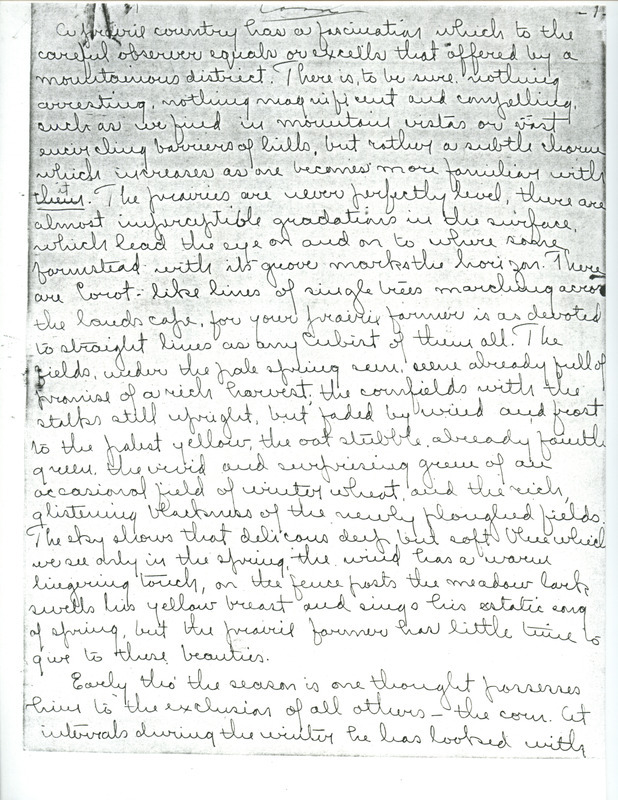 -1-
Corn
A prairie country has a fascination which to the
careful observer equals or excells that offered by a
mountainous district. There is, to be sure, nothing
arresting, nothing magnificent and compelling,
such as we find in mountain vistas or vast
encircling barriers of hills, but rather a subtle charm
which increases as one becomes more familiar with
them. it The prairies are never perfectly level, there are
almost imperceptible gradations in the surface,
which lead the eye on and on to where some
farmstead with its grove marks the horizon. There
are Corot-like lines of single trees marching across
the landscape, for your prairie farmer is as devoted
to straight lines as any Cubist of them all. The
fields, under the pale spring sun, seem already full of
promise of a rich harvest, the cornfields with the
stalks still upright, but faded by wind and frost
to the palest yellow, the oat stubble, already faintly
green, the vivid and surprising green of an
occasional field of winter wheat, and the rich,
glistening blackness of the newly ploughed fields.
The sky shows that delicous deep but soft blue which
we see only in the spring, the wind has a warm
lingering touch, on the fence posts the meadow lark
swells his yellow breast and sings his estatic song
of spring, but the prairie farmer has little time to
give to these beauties.
Early tho' the season is one thought possesses
him to the exclusion of all others – the corn. At
intervals during the winter he has looked with